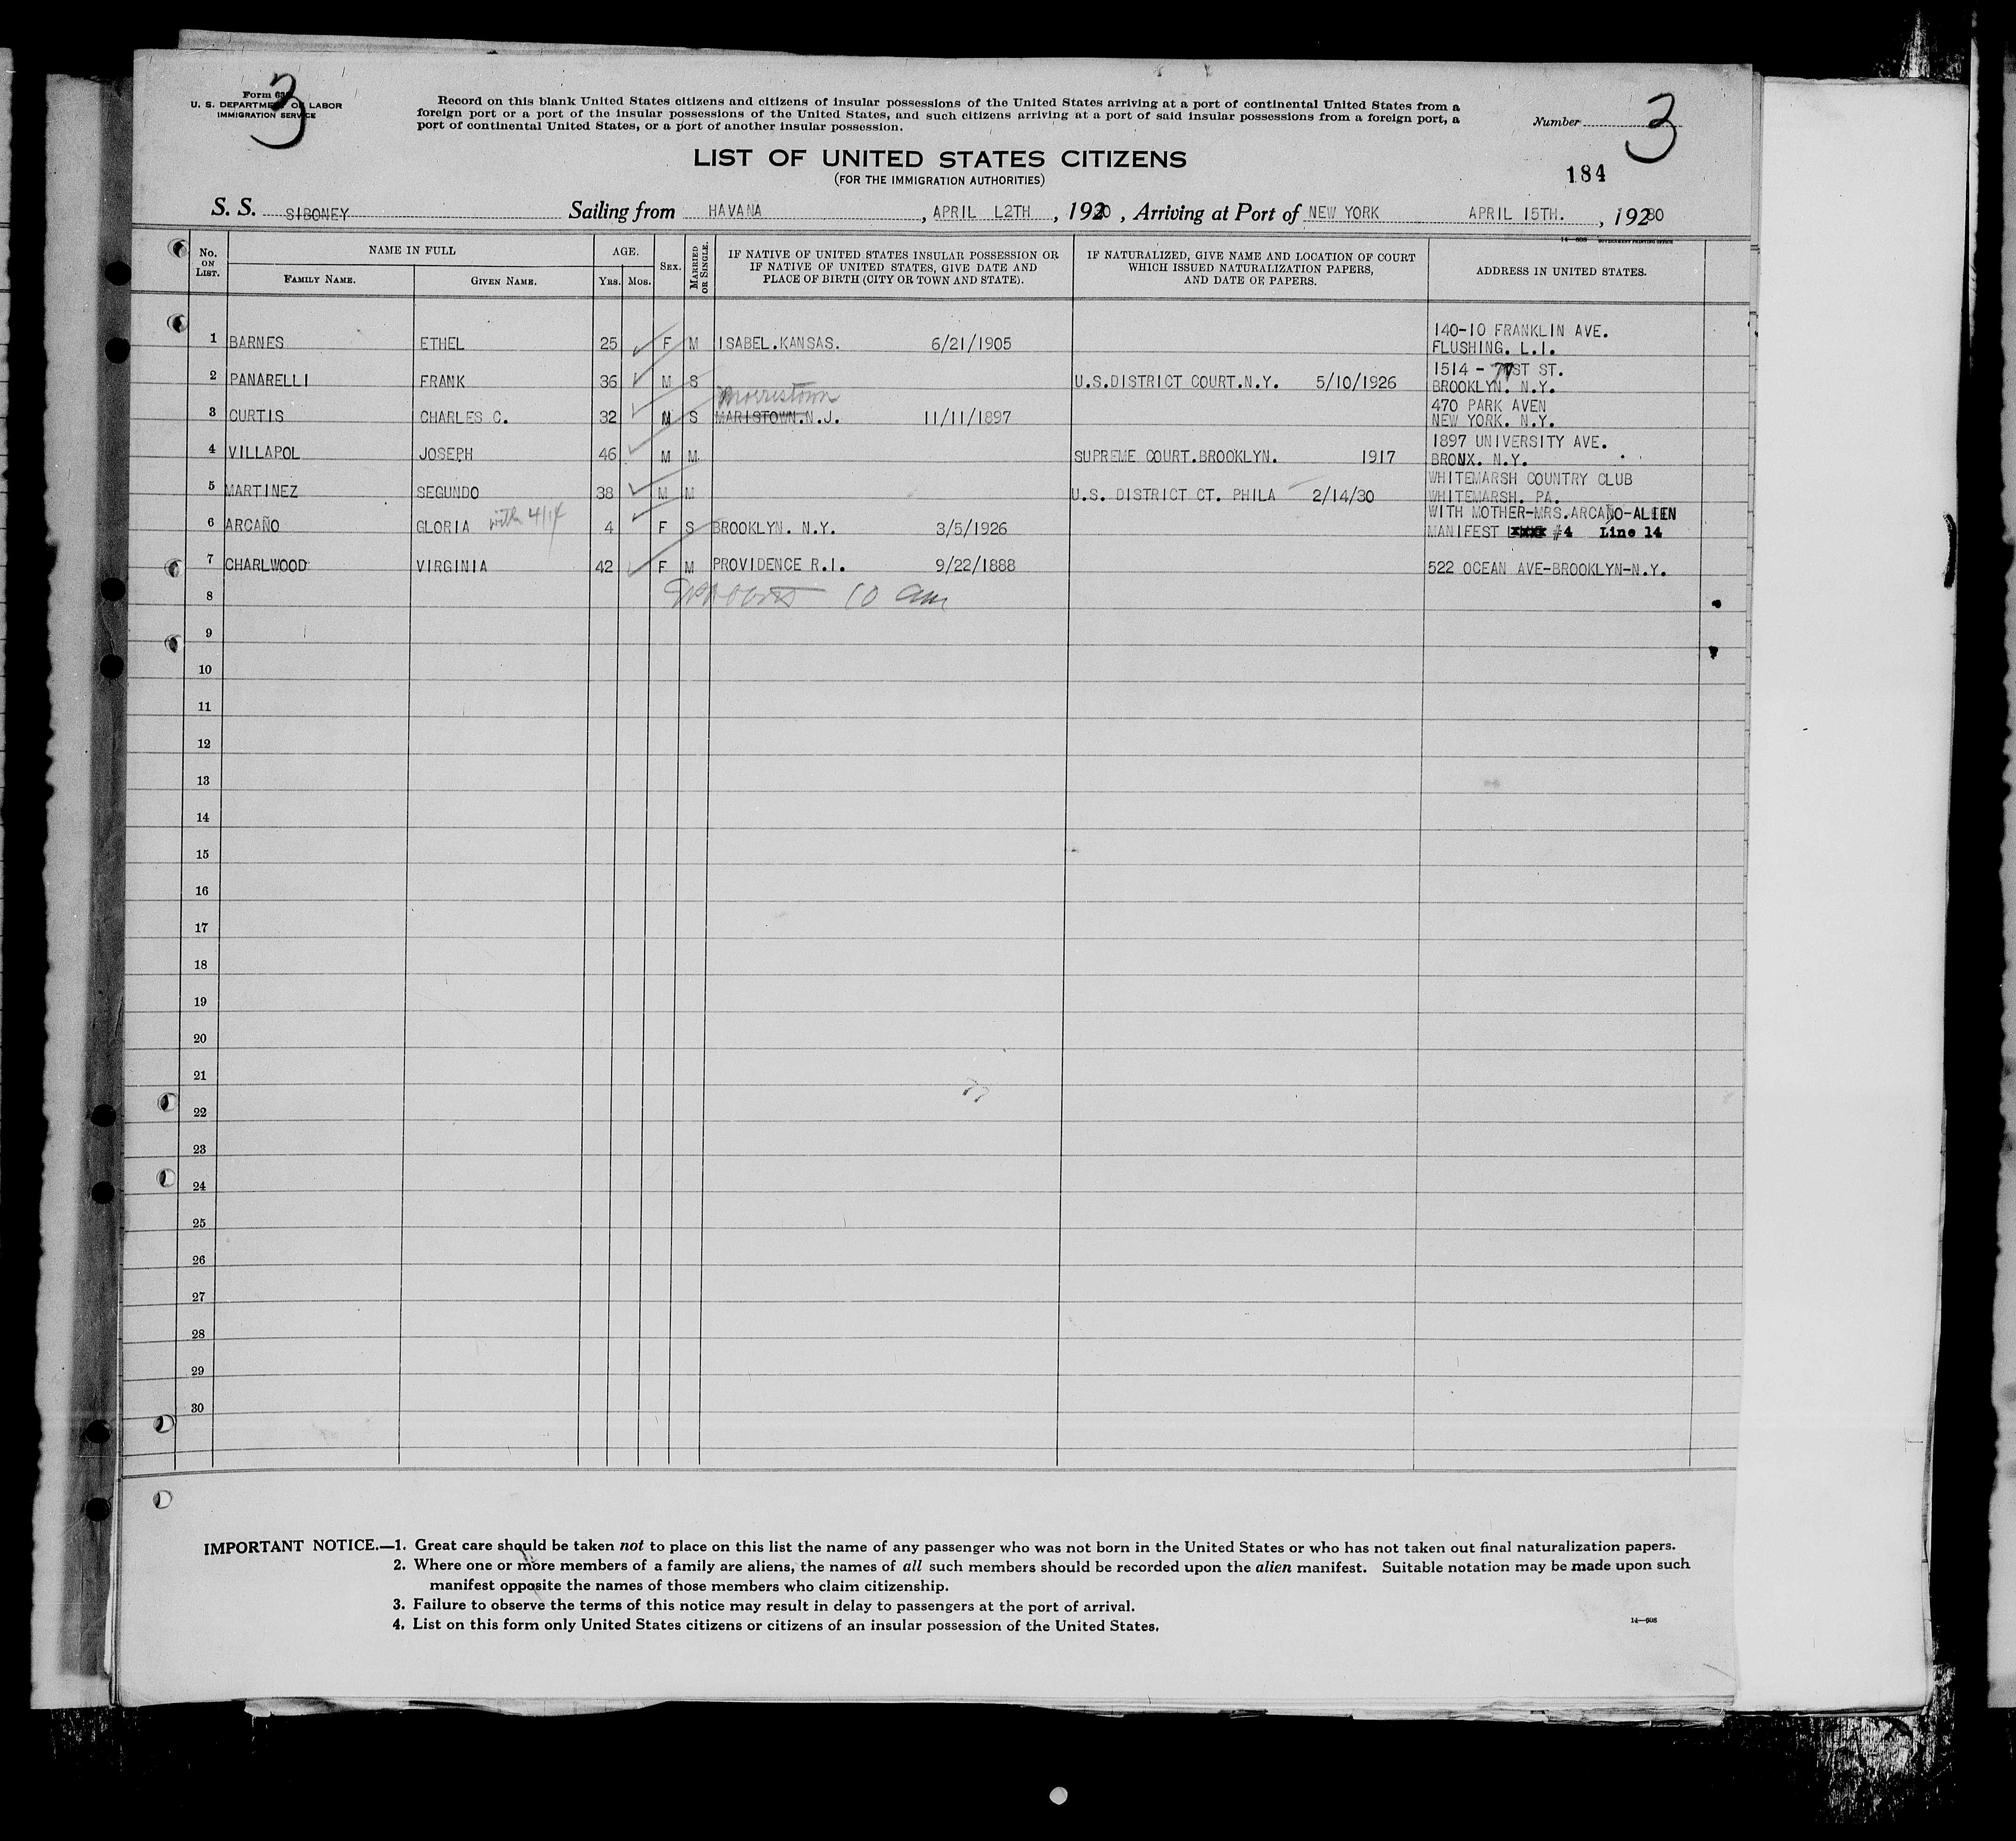 3
Form 63
U. S. DEPARTMENT OF LABOR
IMMIGRATION SERVICE
Record on this blank United States citizens and citizens of insular possessions of the United States arriving at a port of continental United States from a
foreign port or a port of the insular possessions of the United States, and such citizens arriving at a port of said insular possessions from a foreign port, a
port of continental United States, or a port of another insular possession.
Number 3
LIST OF UNITED STATES CITIZENS
(FOR THE IMMIGRATION AUTHORITIES)
184
S. S. SIBONEY Sailing from HAVANA, APRIL L2TH, 1930, Arriving at Port of NEW YORK APRIL 15TH., 19230
14—608 GOVERNMENT PRINTING OFFICE
No. ON LIST. NAME IN FULL FAMILY NAME. GIVEN NAME. AGE. YRS. MOS. SEX. MARRIED OR SINGLE. IF NATIVE OF UNITED STATES INSULAR POSSESSION OR IF NATIVE OF UNITED STATES, GIVE DATE AND PLACE OF BIRTH (CITY OR TOWN AND STATE). IF NATURALIZED, GIVE NAME AND LOCATION OF COURT WHICH ISSUED NATURALIZATION PAPERS, AND DATE OF PAPERS. ADDRESS IN UNITED STATES.
1 BARNES ETHEL 25 F M ISABEL.KANSAS. 6/21/1905 140-10 FRANKLIN AVE.
FLUSHING. L.I.
2 PANARELLI FRANK 36 M S U.S.DISTRICT COURT.N.Y. 5/10/1926 1514 - 71ST ST.
BROOKLYN. N.Y.
Morristown
3 CURTIS CHARLES C. 32 M S MARISTOWN.N.J. 11/11/1897 470 PARK AVEN
NEW YORK. N.Y.
4 VILLAPOL JOSEPH 46 M M SUPREME COURT.BROOKLYN. 1917 1897 UNIVERSITY AVE.
BRONX. N.Y.
5 MARTINEZ SEGUNDO 38 M M U.S. DISTRICT CT. PHILA 2/14/30 WHITEMARSH COUNTRY CLUB
WHITEMARSH. PA.
6 ARCAÑO GLORIA with 4/14 4 F S BROOKLYN. N.Y. 3/5/1926 WITH MOTHER-MRS.ARCAÑO-ALIEN
MANIFEST #4 Line 14
7 CHARLWOOD VIRGINIA 42 F M PROVIDENCE R.I. 9/22/1888 522 OCEAN AVE-BROOKLYN-N.Y.
8 10 am
9
10
11
12
13
14
15
16
17
18
19
20
21
22
23
24
25
26
27
28
29
30
IMPORTANT NOTICE.—1. Great care should be taken not to place on this list the name of any passenger who was not born in the United States or who has not taken out final naturalization papers.
2. Where one or more members of a family are aliens, the names of all such members should be recorded upon the alien manifest. Suitable notation may be made upon such
manifest opposite the names of those members who claim citizenship.
3. Failure to observe the terms of this notice may result in delay to passengers at the port of arrival.
4. List on this form only United States citizens or citizens of an insular possession of the United States.
14—608